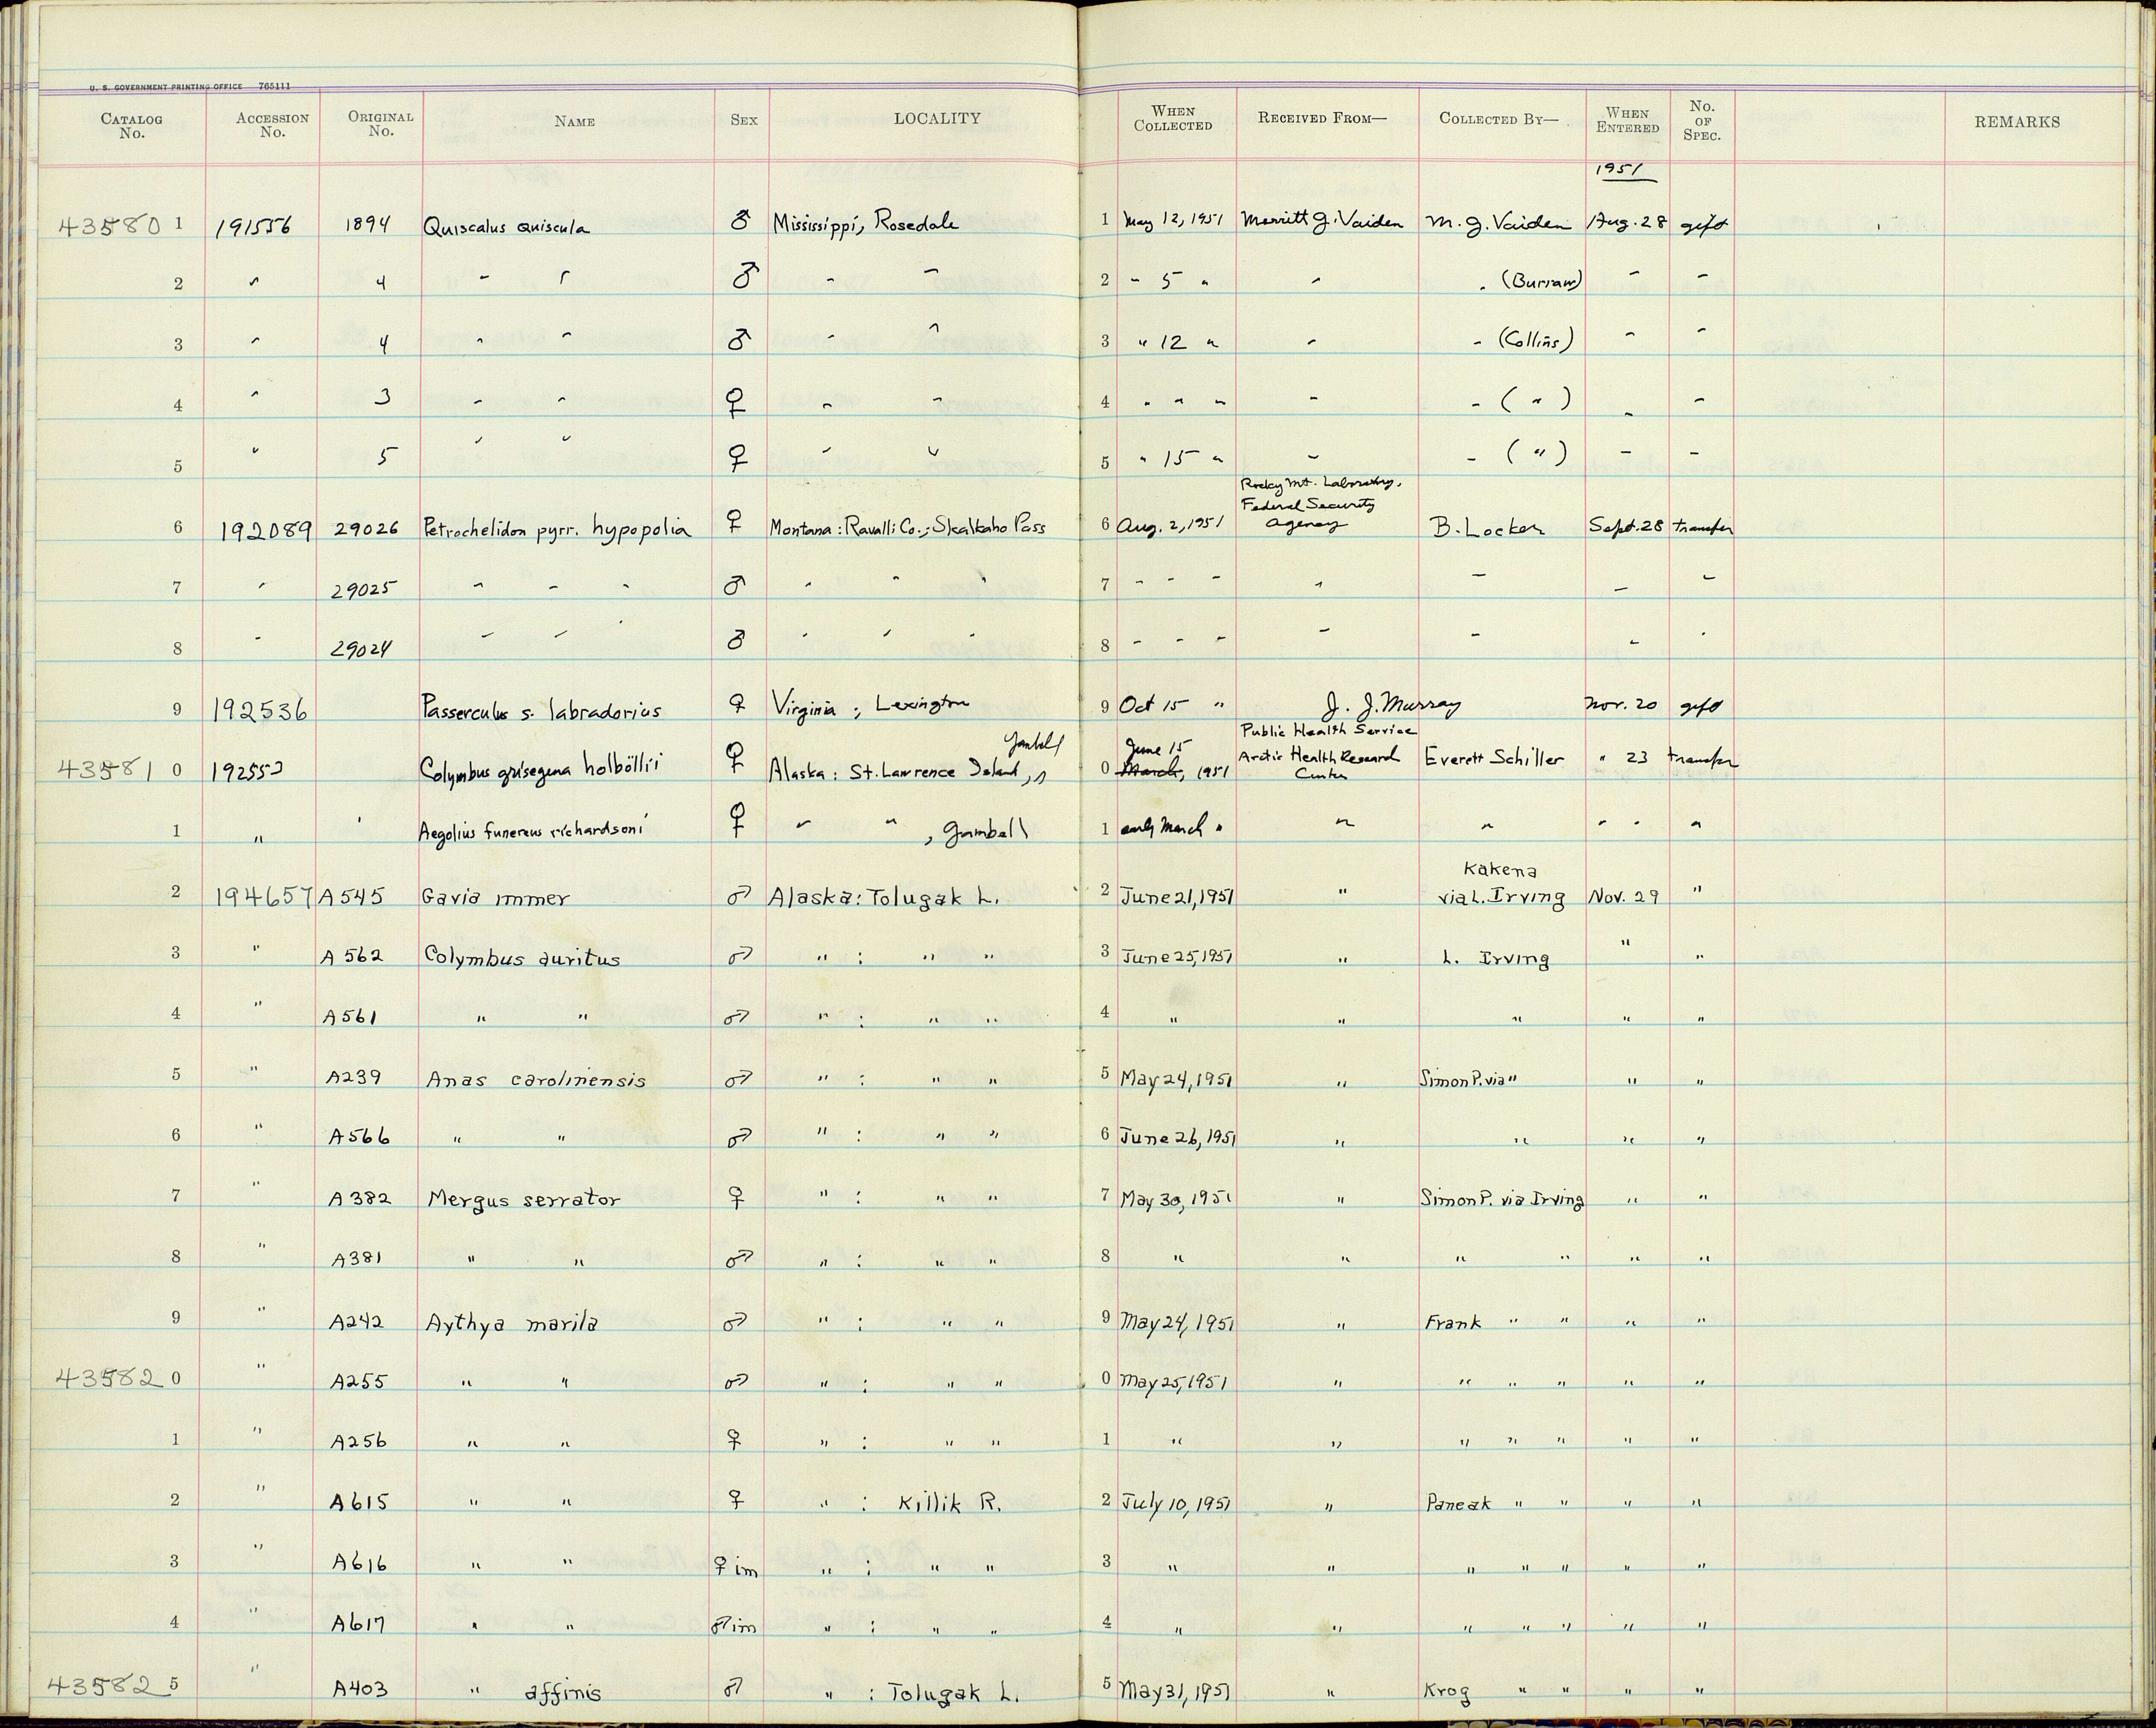 U. S. GOVERNMENT PRINTING OFFICE 765111
CATALOG No. ACCESSION No. ORIGINAL No. NAME SEX LOCALITY WHEN COLLECTED RECEIVED FROM— COLLECTED BY— WHEN ENTERED No. OF SPEC. REMARKS
1951
43580 1 191556 1894 Quiscalus quiscula ♂ Mississippi, Rosedale 1 May 12, 1951 Merritt G. Vaiden M. G. Vaiden Aug. 28 gift
2 " 4 " " ♂ " " 2 " 5 " " " (Burram) " "
3 " 4 " " ♂ " " 3 " 12 " " " (Collins) " "
4 " 3 " " ♀ " " 4 " " " " " ( " ) " "
5 " 5 " " ♀ " " 5 " 15 " " " ( " ) " "
6 192089 29026 Petrochelidon pyrr. hypopolia ♀ Montana: Ravalli Co.; Skalkaho Pass 6 Aug. 2, 1951 Rocky Mt. Laboratory, Federal Security Agency B. Locker Sept. 28 transfer
7 " 29025 " " " ♂ " " " 7 " " " " " " "
8 " 29024 " " " ♂ " " " 8 " " " " " " "
9 192536 Passerculus s. labradorius ♀ Virginia; Lexington 9 Oct 15 " J. J. Murray Nov. 20 gift
43581 0 192553 Colymbus grisegena holböllii ♀ Alaska: St. Lawrence Island, Gambell 0 June 15 March, 1951 Public Health Service Arctic Health Research Center Everett Schiller " 23 transfer
1 " Aegolius funereus richardsoni ♀ " " , Gambell 1 early March " " " " " "
2 194657 A545 Gavia immer ♂ Alaska: Tolugak L. 2 June 21, 1951 " Kakena via L. Irving Nov. 29 "
3 " A562 Colymbus auritus ♂ " : " " 3 June 25, 1951 " L. Irving " "
4 " A561 " " ♂ " : " " 4 " " " " "
5 " A239 Anas carolinensis ♂ " : " " 5 May 24, 1951 " Simon P. via " " "
6 " A566 " " ♂ " : " " 6 June 26, 1951 " " " "
7 " A382 Mergus serrator ♀ " : " " 7 May 30, 1951 " Simon P. via Irving " "
8 " A381 " " ♂ " : " " 8 " " " " " "
9 " A242 Aythya marila ♂ " : " " 9 May 24, 1951 " Frank " " " "
43582 0 " A255 " " ♂ " : " " 0 May 25, 1951 " " " " " "
1 " A256 " " ♀ " : " " 1 " " " " " " "
2 " A615 " " ♀ " : Killik R. 2 July 10, 1951 " Paneak " " " "
3 " A616 " " ♀ im " : " " 3 " " " " " " "
4 " A617 " " ♂ im " : " " 4 " " " " " " "
43582 5 " A403 " affinis ♂ " : Tolugak L. 5 May 31, 1951 " Krog " " " "